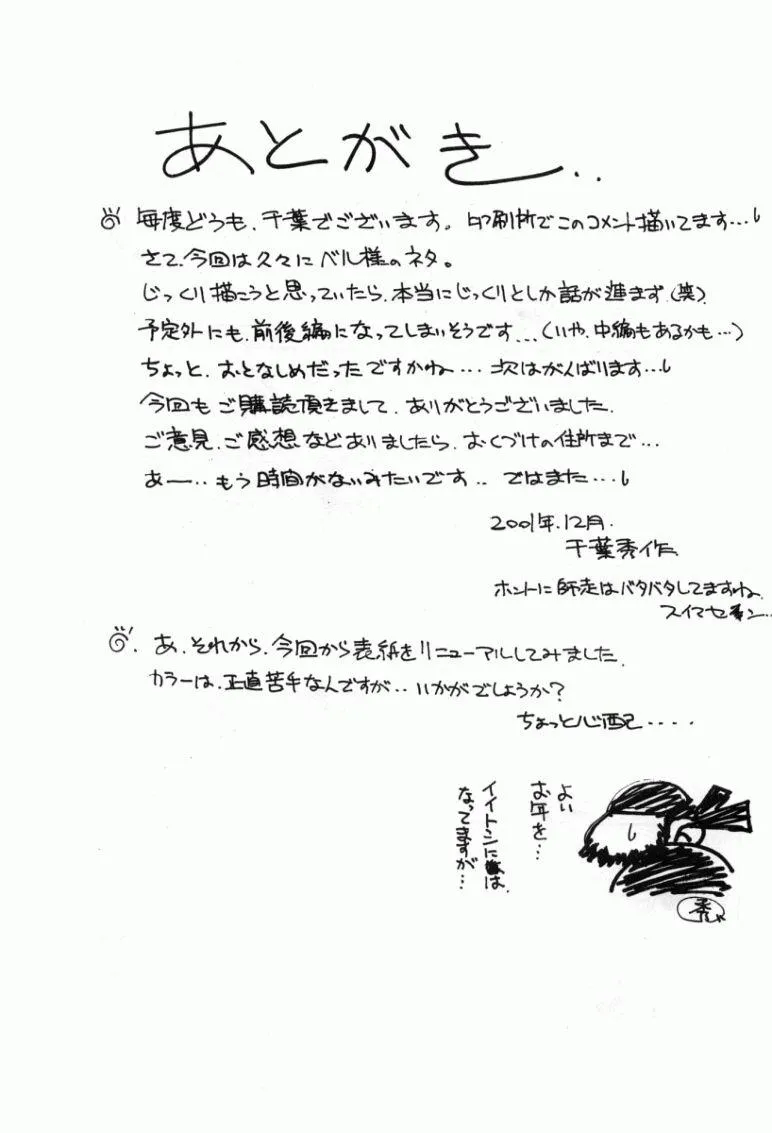 あとがき..
毎度どうも、千葉でございます。印刷所でこのコメント描いてます…
さて、今回は久々にベル様のネタ。
じっくり描こうと思っていたら、本当にじっくりとしか話が進まず(笑)、
予定外にも、前後編になってしまいそうです…(いや、中編もあるかも…)
ちょっと、おとなしめだったですかね…次はがんばります…
今回もご購読頂きまして、ありがとうございました。
ご意見、ご感想などありましたら、おくづけの住所まで…
あー‥もう時間がないみたいです‥ではまた…
2001年.12月.
千葉秀作
ホントに師走はバタバタしてますね。
スイマセン…
あ、それから、今回から表紙をリニューアルしてみました。
カラーは、正直苦手なんですが‥いかがでしょうか?
ちょっと心配‥‥
よい
お年を…
イイトシには、
なってますが…
秀